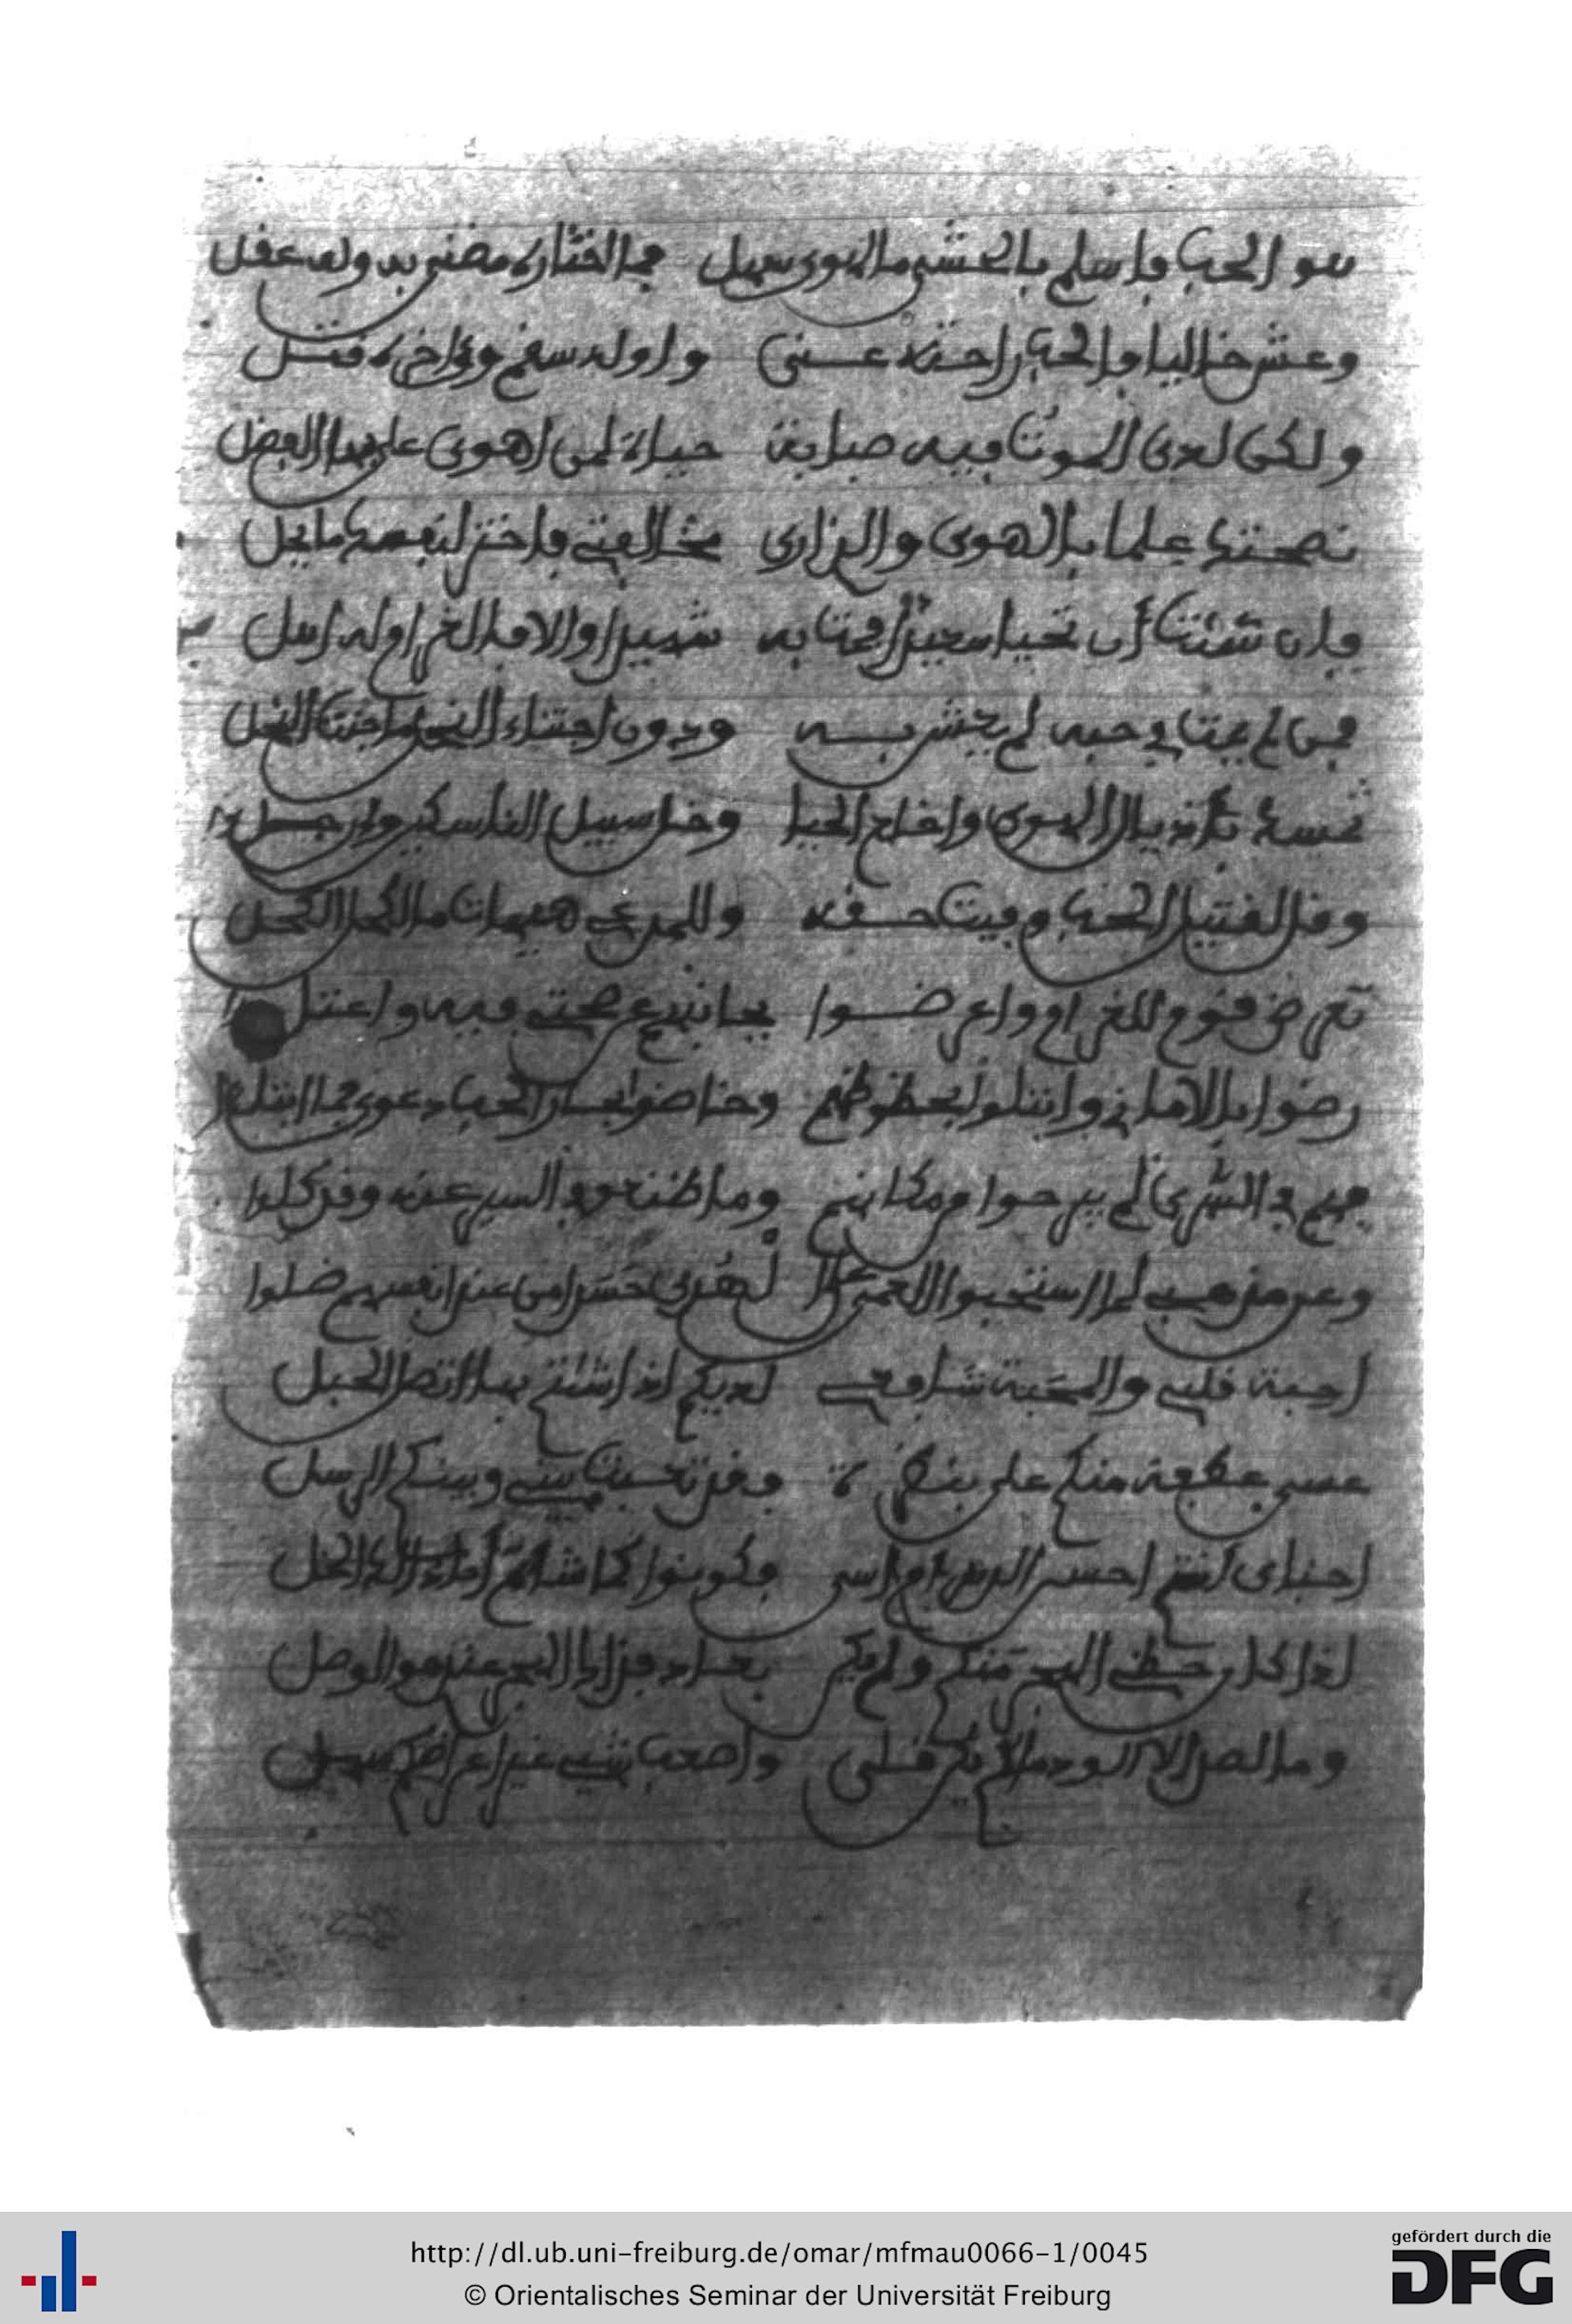 هو الحب فاسلم بالحشى ما الهوى سهل فما اختاره مضنى به وله عقل
وعش خاليا فالحب راحته عنى واوله سقم وءاخره قتل
ولكن لدى الموت فيه صبابة حياة لمن اهوى على بها الفضل
نصحتك علما بالهوى والذى ارى مخالفتى فاختر لنفسك ما يحل
فان شئت أن تحيا سعيدا فمت به شهيدا والا فالغرام له اهل
فمن لم يمت في حبه لم يعش به ودون اجتناء النحل ما جنت النحل
تمسك باذيال الهوى واخلع الحيا وخل سبيل الناسكين وان جلوا
وقل لقتيل الحب وفيت حقه وللمدعي هيهات ما الكحل الكحل
تعرض قوم للغرام واعرضوا بجانبهم عن صحتي فيه واعتلوا
رضوا بالاماني وابتلوا بحظوظهم وخاضوا بحار الحب دعوى فما ابتلوا
فهم في السرى لم يبرحوا من مكانهم وما ظعنوا في السير عنه وقد كلوا
وعن مذهبي لما استحبوا العمى على الهدى حسدا من عند انفسهم ضلوا
احبة قلبي والمحبة شافعي لديكم اذا شئتم بها اتصل الحبل
عسى عطفة منكم علي بنظرة فقد تعبت بيني وبينكم الرسل
احباى انتم احسن الدهر ام اسى فكونوا كما شئتم أنا ذلك الخل
اذا كان حظي الهجر منكم ولم يكن بعاد فذاك الهجر عندي هو الوصل
وما الصد الا الود ما لم يكن قلى واصعب شيء غير اعراضكم سهل
http://dl.ub.uni-freiburg.de/omar/mfmau0066-1/0045
© Orientalisches Seminar der Universität Freiburg
gefördert durch die
DFG